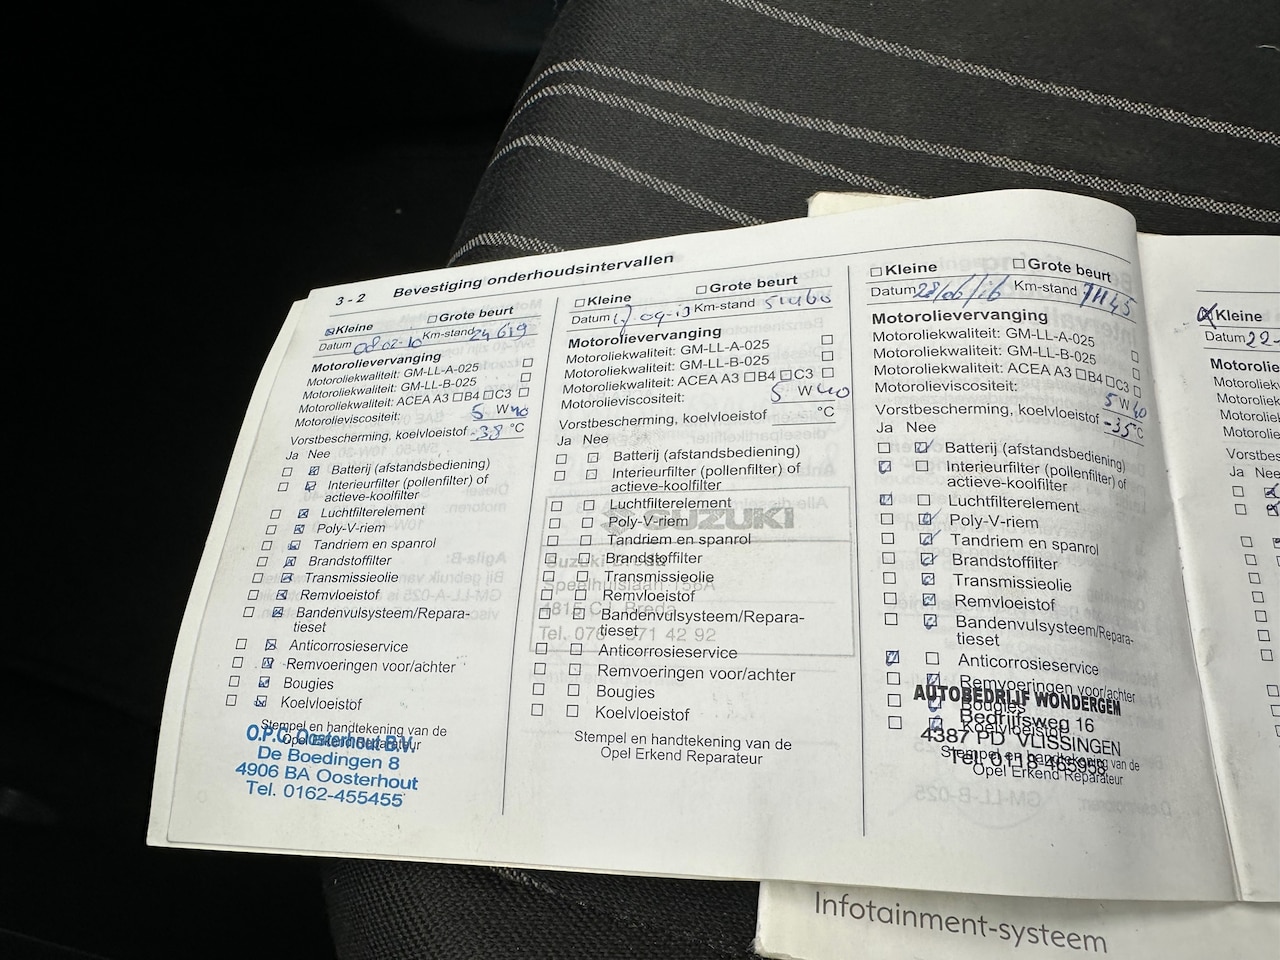 3 - 2 Bevestiging onderhoudsintervallen
Kleine Grote beurt
Datum 08-02-10 Km-stand 24619
Motorolievervanging
Motoroliekwaliteit: GM-LL-A-025
Motoroliekwaliteit: GM-LL-B-025
Motoroliekwaliteit: ACEA A3 B4 C3
Motorolieviscositeit: 5 W 40
Vorstbescherming, koelvloeistof -38 °C
Ja Nee
Batterij (afstandsbediening)
Interieurfilter (pollenfilter) of
actieve-koolfilter
Luchtfilterelement
Poly-V-riem
Tandriem en spanrol
Brandstoffilter
Transmissieolie
Remvloeistof
Bandenvulsysteem/Repara-
tieset
Anticorrosieservice
Remvoeringen voor/achter
Bougies
Koelvloeistof
Stempel en handtekening van de
Opel Erkend Reparateur
O.P.C. Oosterhout B.V.
De Boedingen 8
4906 BA Oosterhout
Tel. 0162-455455
Kleine Grote beurt
Datum Km-stand
Motorolievervanging
Motoroliekwaliteit: GM-LL-A-025
Motoroliekwaliteit: GM-LL-B-025
Motoroliekwaliteit: ACEA A3 B4 C3
Motorolieviscositeit: 5 W 40
Vorstbescherming, koelvloeistof °C
Ja Nee
Batterij (afstandsbediening)
Interieurfilter (pollenfilter) of
actieve-koolfilter
Luchtfilterelement
SUZUKI
Poly-V-riem
Tandriem en spanrol
Brandstoffilter
Suzuki Breda
Transmissieolie
Speelhuislaan
Remvloeistof
4815 Breda
Bandenvulsysteem/Repara-
tieset
Tel. 076 - 571 42 92
Anticorrosieservice
Remvoeringen voor/achter
Bougies
Koelvloeistof
Stempel en handtekening van de
Opel Erkend Reparateur
Kleine Grote beurt
Datum 28/06/16 Km-stand 71145
Motorolievervanging
Motoroliekwaliteit: GM-LL-A-025
Motoroliekwaliteit: GM-LL-B-025
Motoroliekwaliteit: ACEA A3 B4 C3
Motorolieviscositeit: 5 W 40
Vorstbescherming, koelvloeistof -35 °C
Ja Nee
Batterij (afstandsbediening)
Interieurfilter (pollenfilter) of
actieve-koolfilter
Luchtfilterelement
Poly-V-riem
Tandriem en spanrol
Brandstoffilter
Transmissieolie
Remvloeistof
Bandenvulsysteem/Repara-
tieset
Anticorrosieservice
Remvoeringen voor/achter
Bougies
Koelvloeistof
AUTOBEDRIJF WONDERGEM
Bedrijfsweg 16
4387 PD VLISSINGEN
Tel. 0118-465958
Stempel en handtekening van de
Opel Erkend Reparateur
Kleine
Datum 22-
Motorolie
Motoroliek
Motoroliek
Motoroliek
Motorolie
Vorstbes
Ja Nee
Infotainment-systeem